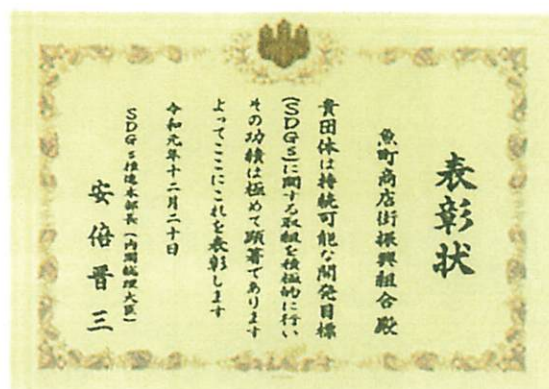 表彰状
魚町商店街振興組合殿
貴団体は持続可能な開発目標
(SDGs)に関する取組を積極的に行い
その功績は極めて顕著であります
よってここにこれを表彰します
令和元年十二月二十日
SDGs推進本部長(内閣総理大臣)
安倍晋三